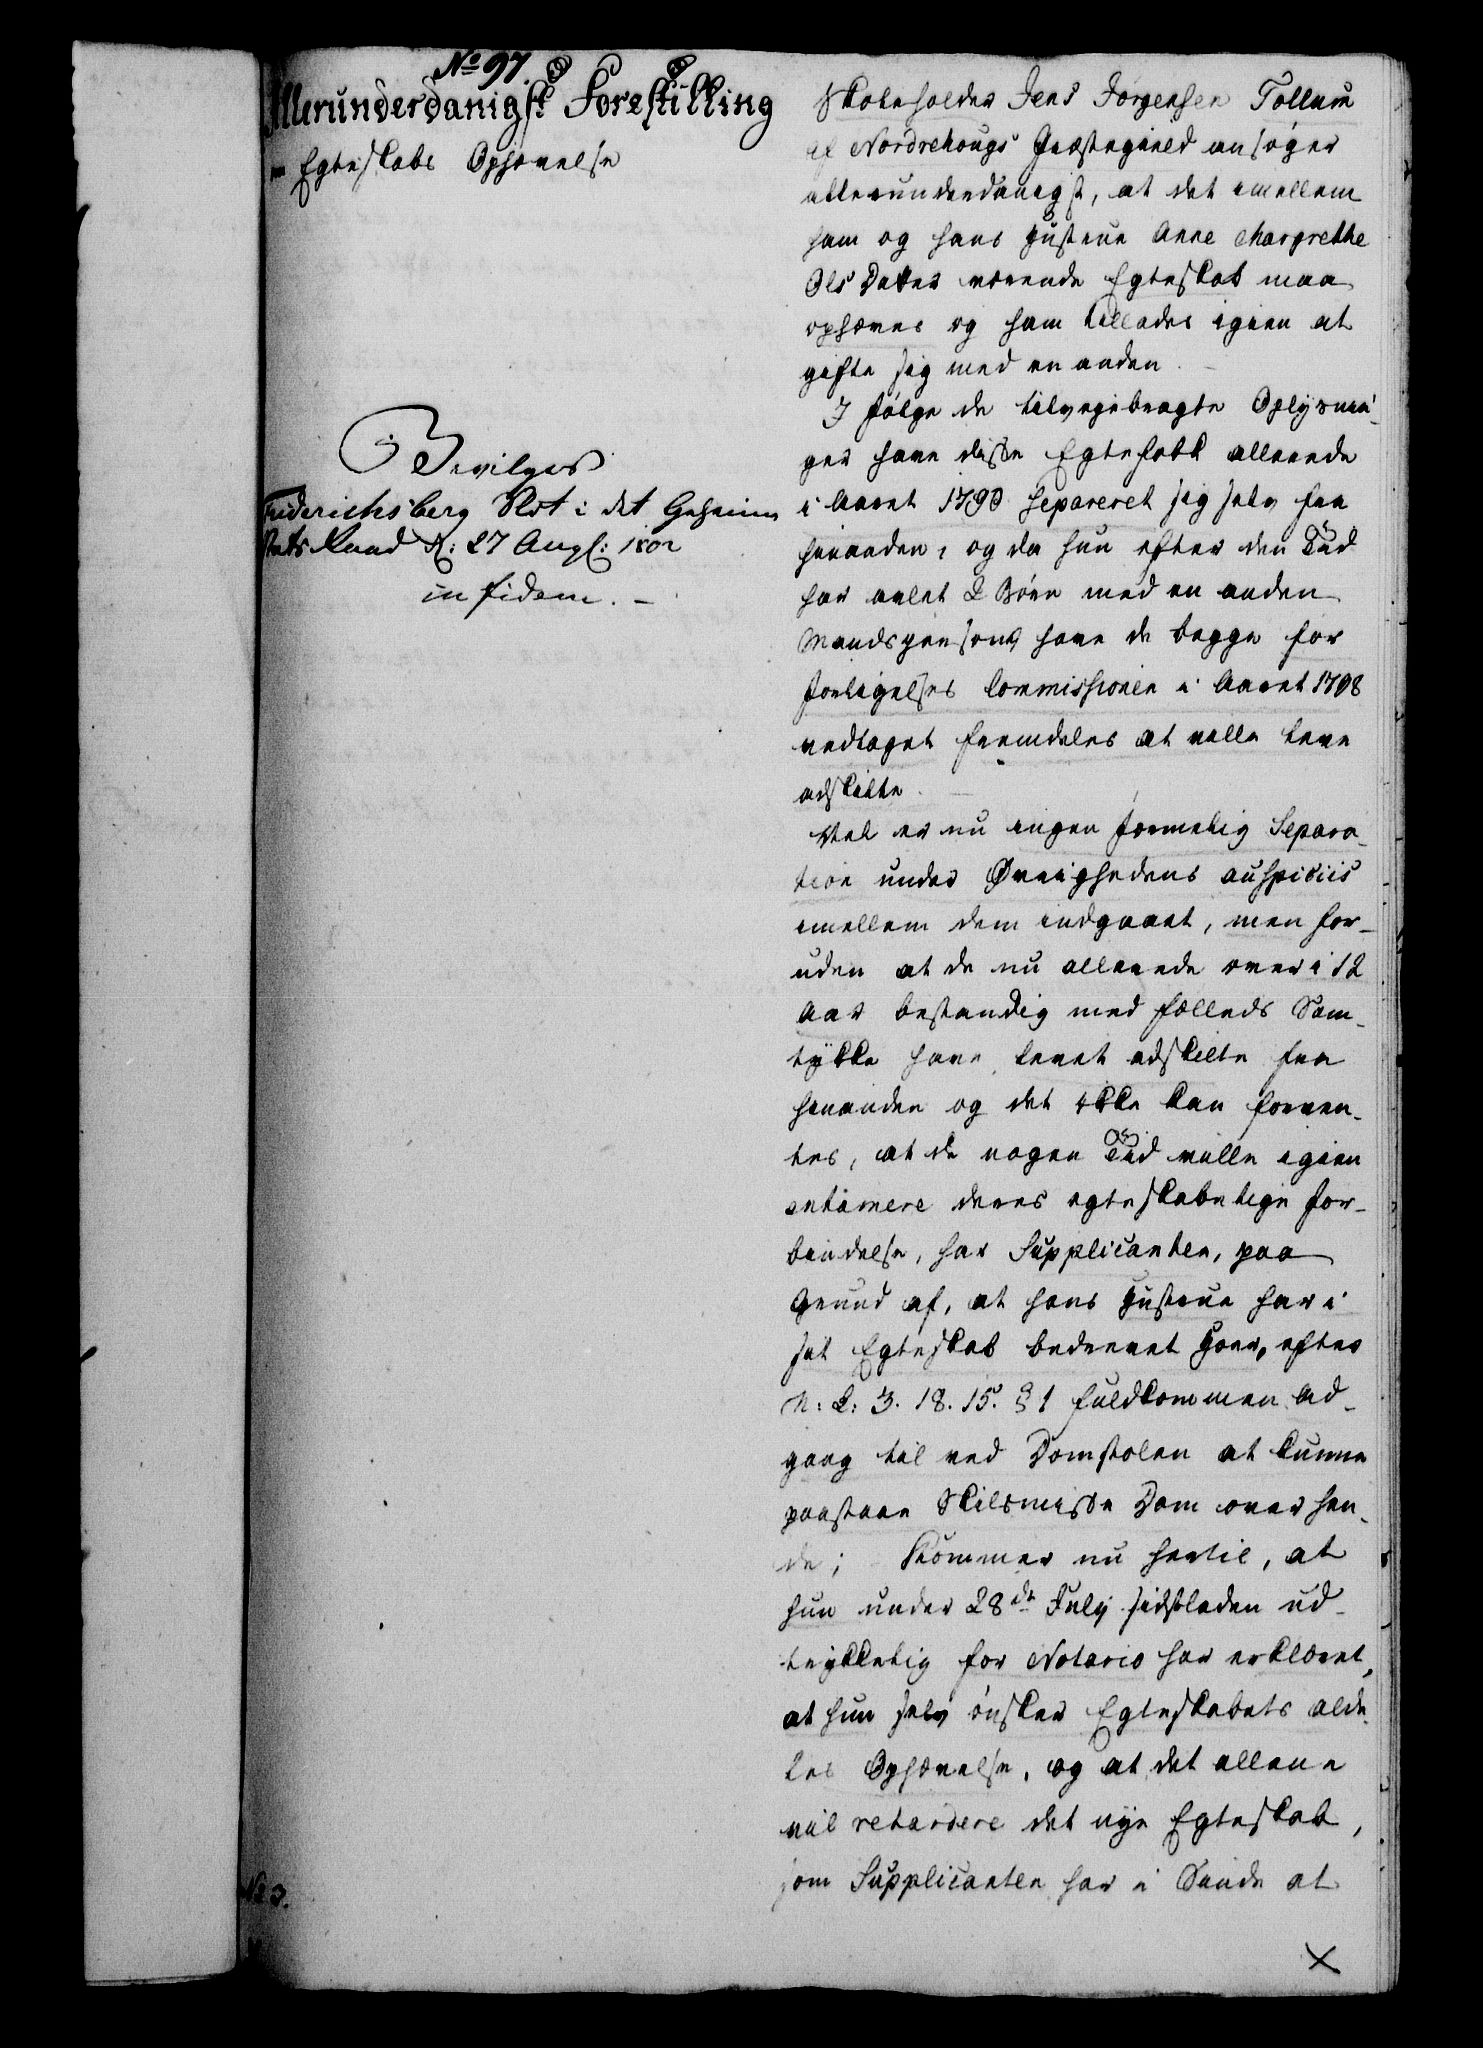 No 97.
Allerunderdanigst Forestilling
om Egteskabs Ophævelse
Bevilges
Friderichsberg Slot i det Geheime
Stats Raad d: 27 Aug: 1802
in fidem. –
Skoleholder Jens Jørgensen Tollum
af Nordrehougs Præstegield ansøger
allerunderdanigst, at det imellem
ham og hans Hustrue Anne Margrethe
Ols Datter værende Egteskab maa
ophæves og ham tillades igien at
gifte sig med en anden. –
I følge de tilvejebragte Oplysnin-
ger have disse Egtefolk allerede
i Aaret 1790 separeret sig selv fra
hinanden, og da hun efter den Tid
har avlet 2 Børn med en anden
Mandsperson, have de begge for
Forligelses Commissionen i Aaret 1798
vedtaget fremdeles at ville leve
adskilte. –
Vel er nu ingen formelig Separa-
tion under Øvrighedens auspiciis
imellem dem indgaaet, men for-
uden at de nu allerede over i 12
Aar bestandig med fælleds Sam-
tykke have levet adskilte fra
hinanden og det ikke kan forven-
tes, at de nogen Tid ville igien
entamere deres egteskabelige For-
bindelse, har Supplicanten, paa
Grund af, at hans Hustrue har i
sit Egteskab bedrevet Hoer, efter
N: L: 3. 18. 15. § 1 fuldkommen Ad-
gang til ved Domstolen at kunne
paastaae Skilsmisse Dom over hen-
de; Kommer nu hertil, at
hun under 28de July sidstleden ud-
trykkelig for Notario har erklæret,
at hun selv ønsker Egteskabets alde-
les Ophævelse, og at det allene
vil retardere det nye Egteskab,
som Supplicanten har i Sinde at
No 3.
X